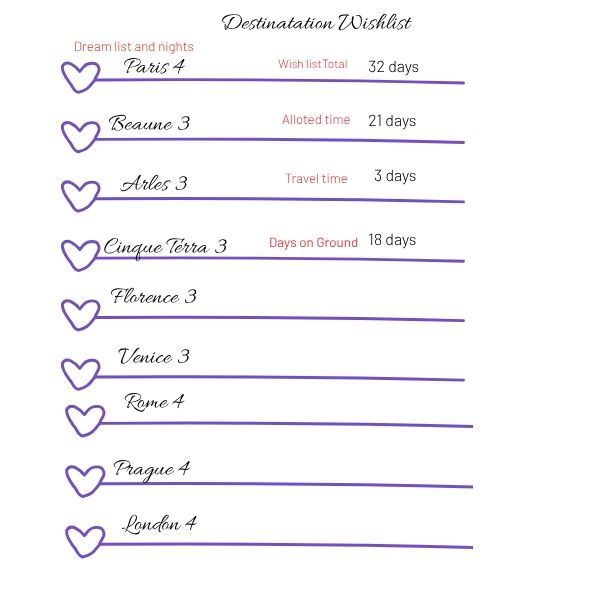 Destinatation Wishlist
Dream list and nights
Paris 4 Wish list Total 32 days
Beaune 3 Alloted time 21 days
Arles 3 Travel time 3 days
Cinque Terra 3 Days on Ground 18 days
Florence 3
Venice 3
Rome 4
Prague 4
London 4